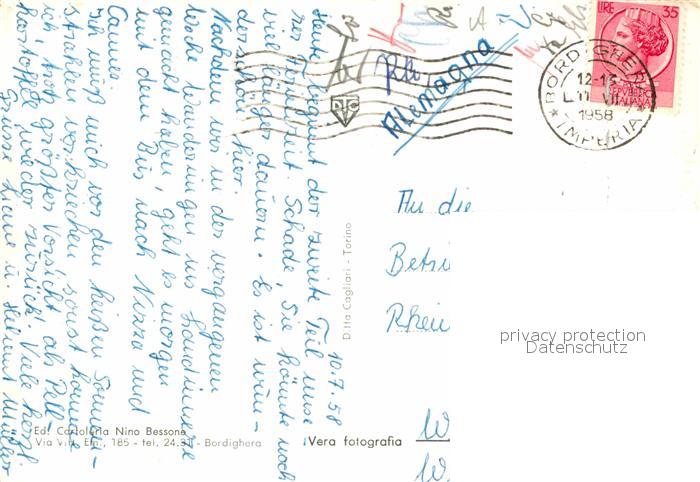 10.7.58
Heute beginnt der zweite Teil unse-
rer Ferienzeit. Schade, sie könnte noch
viel länger dauern. Es ist wun-
derschön hier.
Nachdem wir in der vergangenen
Woche Wanderungen ins Landinnere
gemacht haben, geht es morgen
mit dem Bus nach Nizza und
Cannes.
Ich muß mich vor den heißen Sonnen-
strahlen verkriechen, sonst komme
ich trotz größter Vorsicht als Pell-
kartoffel wieder zurück. Viele herzl.
Grüsse u. Helmut
Alemagna
LIRE 35
REPVBBLICA
ITALIANA
BORDIGHERA
12-13
1958
* IMPERIA *
An die
Betri
Rhein
W
W.
privacy protection
Datenschutz
Ditta Cagliari - Torino
Ed. Cartoleria Nino Bessone
Via Vitt. Em., 185 - tel. 24.31 - Bordighera
Vera fotografia